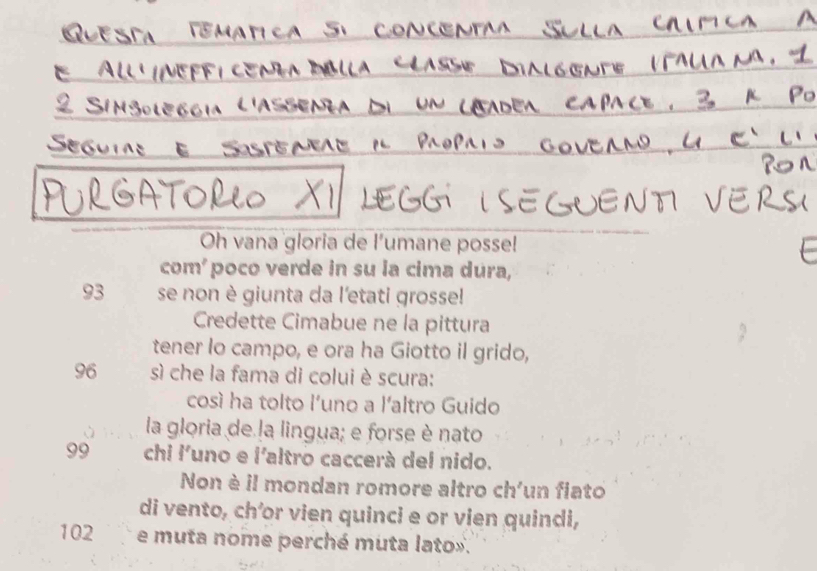 QUESTA TEMATICA SI CONCENTRA SULLA CRITICA A
E ALL'INEFFICENZA DELLA CLASSE DIRIGENTE ITALIANA. 1
2 SIMBOLEGGIA L'ASSENZA DI UN LEADER CAPACE. 3 K PO
SEGUIRE E SOSTENERE IL PROPRIO GOVERNO. 4 E' LI
POR
PURGATORIO XI LEGGI I SEGUENTI VERSI
E
Oh vana gloria de l'umane posse!
com' poco verde in su la cima dura,
93 se non è giunta da l'etati grosse!
Credette Cimabue ne la pittura
tener lo campo, e ora ha Giotto il grido,
96 sì che la fama di colui è scura:
così ha tolto l'uno a l'altro Guido
la gloria de la lingua; e forse è nato
99 chi l'uno e l'altro caccerà del nido.
Non è il mondan romore altro ch'un fiato
di vento, ch'or vien quinci e or vien quindi,
102 e muta nome perché muta lato».